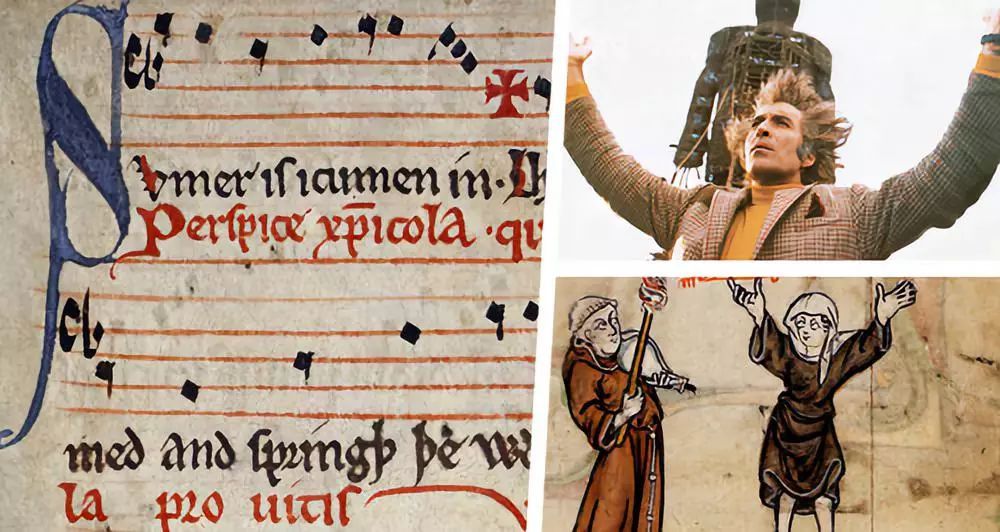 Svmer iſ icumen in· Lh
Perſpice xp̄icola ·qu
med and ſpringþ þe
la pro uitiſ